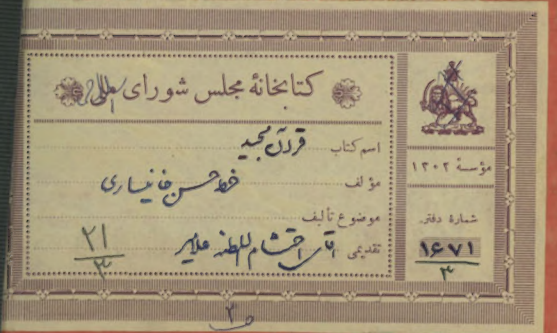 کتابخانهٔ مجلس شورای
اسم کتاب قرآن مجید
مؤلف خط حسن خانیساری
موضوع تألیف
تقدیمی آقای احتشام السلطنه علامیر
۲۱
۳
مؤسسهٔ ۱۳۰۲
شمارهٔ دفتر
۱۶۷۱
۳
۳